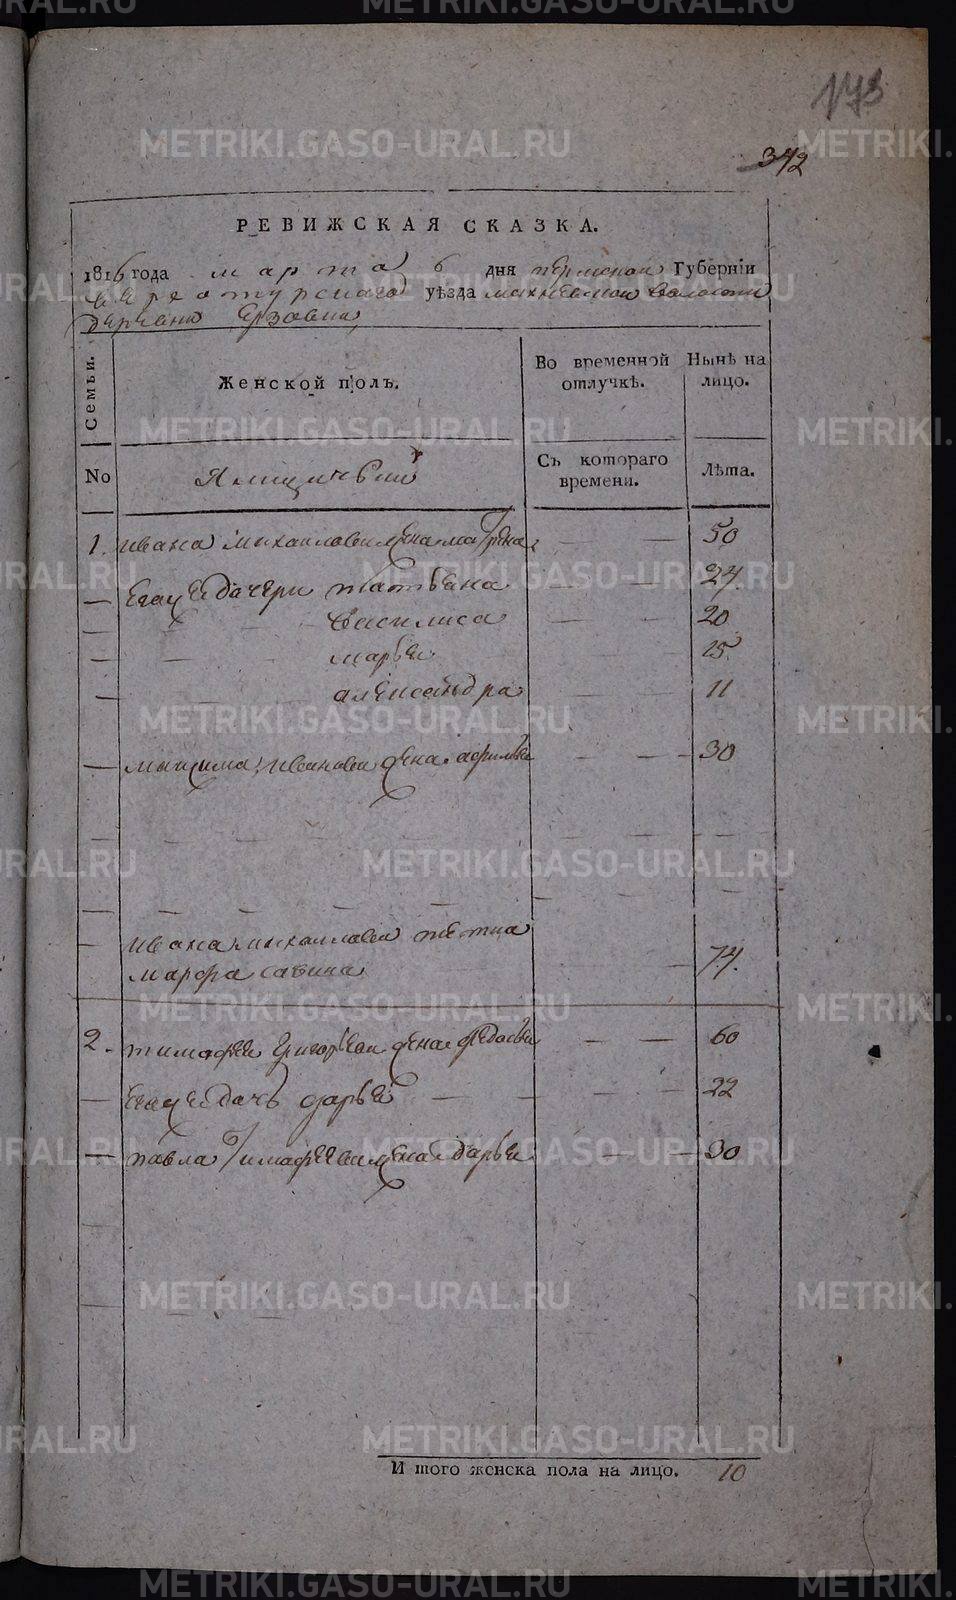 173
342
РЕВИЖСКАЯ СКАЗКА.
1816 года марта 6 дня пермской Губернїи
верхотурскаго уѣзда махневской волости
деревни Ерзовки
Семьи. Женской полъ. Во временной отлучкѣ. Нынѣ на лицо.
No Съ котораго времени. Лѣта.
1. ивана михайлова жена матрена 50
его же дочери татьяна 24.
василиса 20
марья 15
александра 11
максима иванова жена 30
ивана михайлова тетка
марфа савина 74.
2. тимофея григорьева жена федосья 60
его же дочь дарья 22
павла тимофеева жена дарья 30
И того женска пола на лицо. 10
METRIKI.GASO-URAL.RU